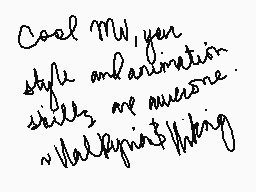 Cool MV, your
style and animation
skills are awesome.
~Valkyrie's Viking